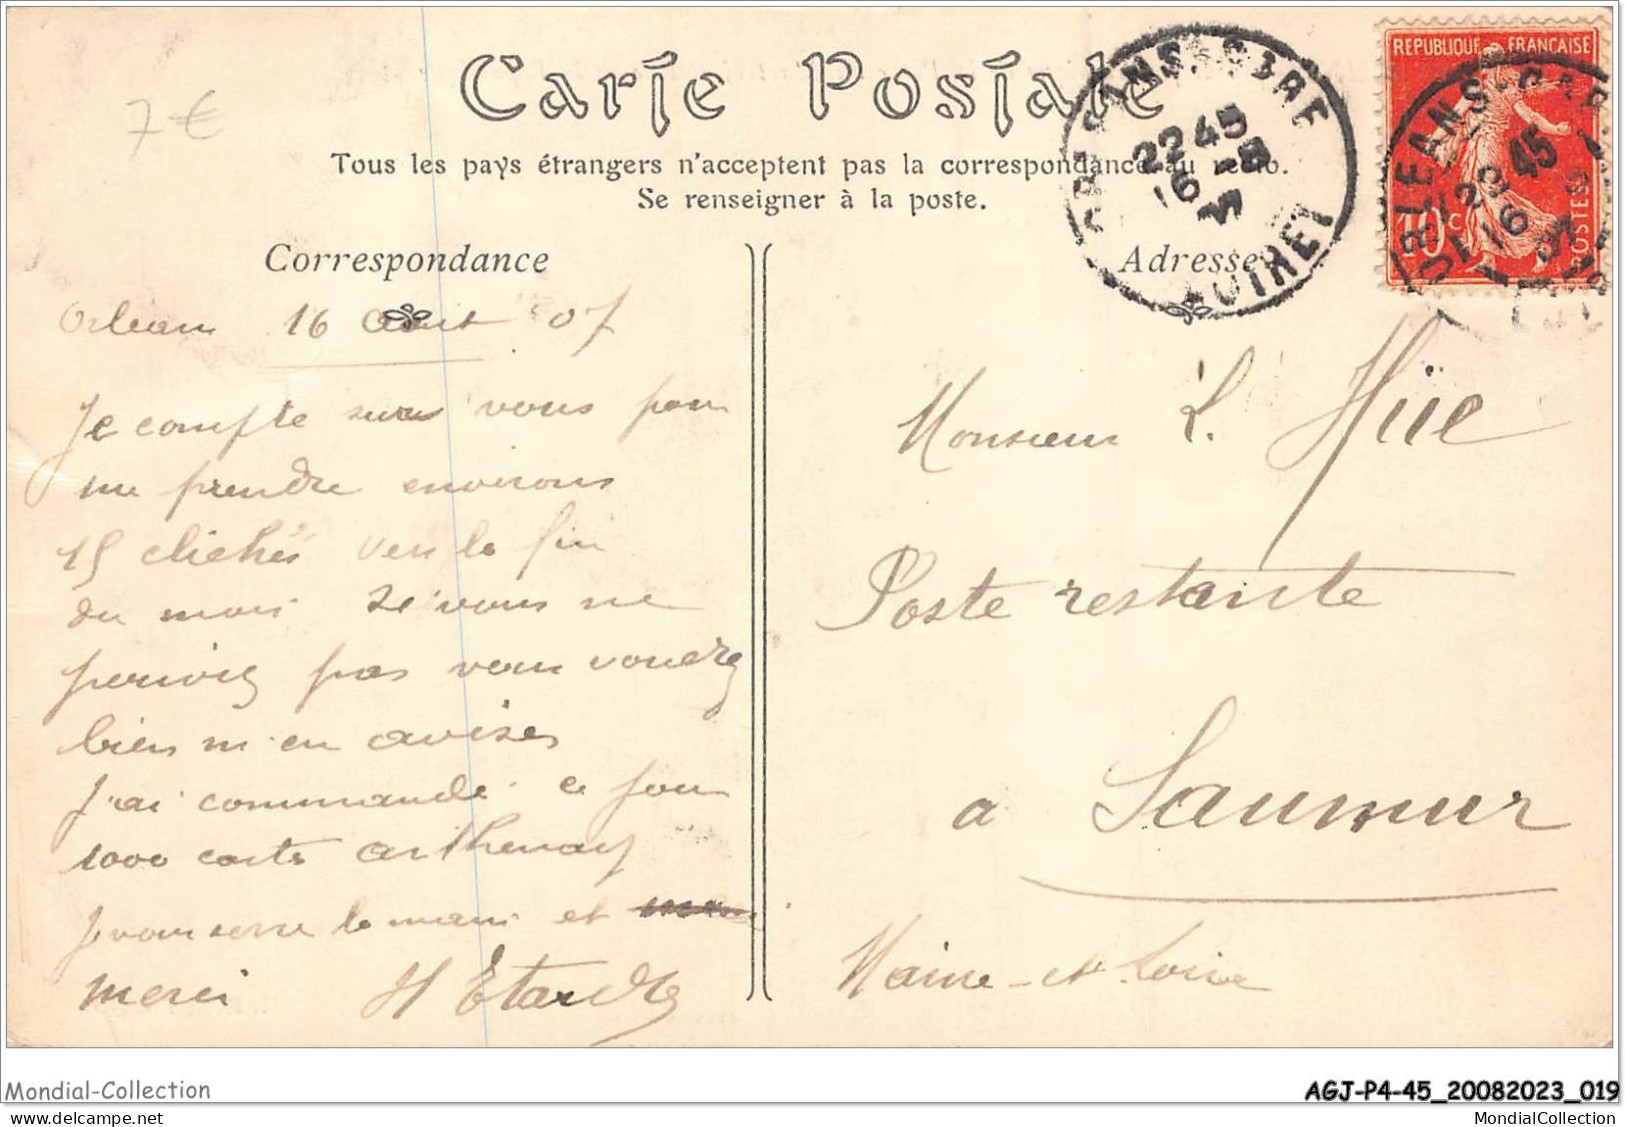 7€
Carte Postale
Tous les pays étrangers n'acceptent pas la correspondance au recto.
Se renseigner à la poste.
REPUBLIQUE FRANCAISE
10c
POSTES
22 45
16
LOIRET
ORLEANS-GARE
22 45
16
07
Correspondance
Orléans 16 Aout 07
Je compte sur vous pour
me prendre environs
15 clichés vers la fin
du mois si vous ne
pouviez pas vous voudrez
bien m'en aviser
J'ai commandé ce jour
1000 cartes arthenay
Je vous serre la main et
merci H
Adresse
Monsieur L. Hüe
Poste restante
a Saumur
Maine-et-Loire
Mondial-Collection
AGJ-P4-45_20082023_019
© delcampe.net
MondialCollection